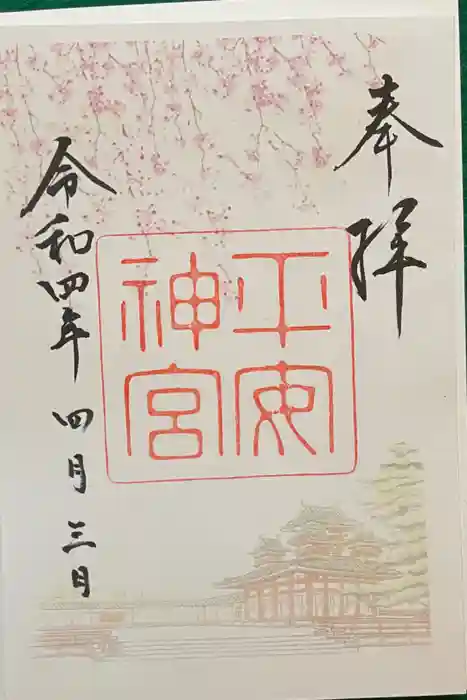 奉拝
平安
神宮
令和四年 四月 三日